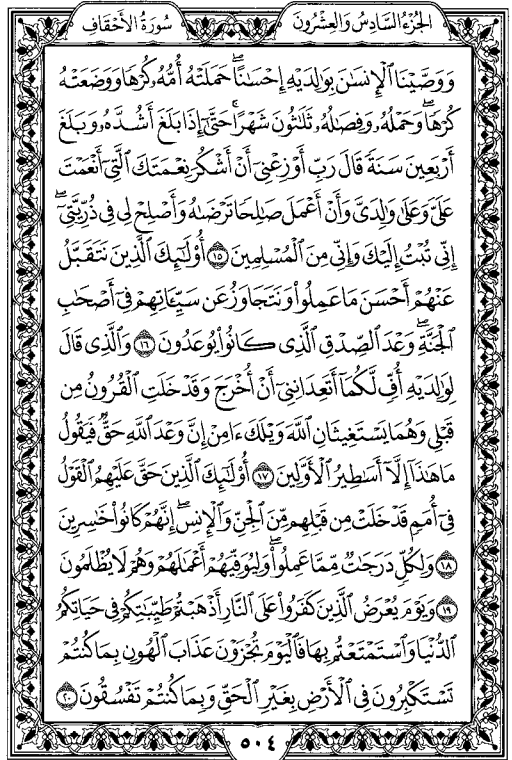 الجزء السادس والعشرون
سورة الأحقاف
وَوَصَّيْنَا ٱلْإِنسَٰنَ بِوَٰلِدَيْهِ إِحْسَٰنًا ۖ حَمَلَتْهُ أُمُّهُۥ كُرْهًا وَوَضَعَتْهُ
كُرْهًا ۖ وَحَمْلُهُۥ وَفِصَٰلُهُۥ ثَلَٰثُونَ شَهْرًا ۚ حَتَّىٰٓ إِذَا بَلَغَ أَشُدَّهُۥ وَبَلَغَ
أَرْبَعِينَ سَنَةً قَالَ رَبِّ أَوْزِعْنِىٓ أَنْ أَشْكُرَ نِعْمَتَكَ ٱلَّتِىٓ أَنْعَمْتَ
عَلَىَّ وَعَلَىٰ وَٰلِدَىَّ وَأَنْ أَعْمَلَ صَٰلِحًا تَرْضَىٰهُ وَأَصْلِحْ لِى فِى ذُرِّيَّتِىٓ ۖ
إِنِّى تُبْتُ إِلَيْكَ وَإِنِّى مِنَ ٱلْمُسْلِمِينَ ١٥ أُو۟لَٰٓئِكَ ٱلَّذِينَ نَتَقَبَّلُ
عَنْهُمْ أَحْسَنَ مَا عَمِلُوا۟ وَنَتَجَاوَزُ عَن سَيِّـَٔاتِهِمْ فِىٓ أَصْحَٰبِ
ٱلْجَنَّةِ ۖ وَعْدَ ٱلصِّدْقِ ٱلَّذِى كَانُوا۟ يُوعَدُونَ ١٦ وَٱلَّذِى قَالَ
لِوَٰلِدَيْهِ أُفٍّ لَّكُمَآ أَتَعِدَانِنِىٓ أَنْ أُخْرَجَ وَقَدْ خَلَتِ ٱلْقُرُونُ مِن
قَبْلِى وَهُمَا يَسْتَغِيثَانِ ٱللَّهَ وَيْلَكَ ءَامِنْ إِنَّ وَعْدَ ٱللَّهِ حَقٌّ فَيَقُولُ
مَا هَٰذَآ إِلَّآ أَسَٰطِيرُ ٱلْأَوَّلِينَ ١٧ أُو۟لَٰٓئِكَ ٱلَّذِينَ حَقَّ عَلَيْهِمُ ٱلْقَوْلُ
فِىٓ أُمَمٍ قَدْ خَلَتْ مِن قَبْلِهِم مِّنَ ٱلْجِنِّ وَٱلْإِنسِ ۖ إِنَّهُمْ كَانُوا۟ خَٰسِرِينَ
١٨ وَلِكُلٍّ دَرَجَٰتٌ مِّمَّا عَمِلُوا۟ ۖ وَلِيُوَفِّيَهُمْ أَعْمَٰلَهُمْ وَهُمْ لَا يُظْلَمُونَ
١٩ وَيَوْمَ يُعْرَضُ ٱلَّذِينَ كَفَرُوا۟ عَلَى ٱلنَّارِ أَذْهَبْتُمْ طَيِّبَٰتِكُمْ فِى حَيَاتِكُمُ
ٱلدُّنْيَا وَٱسْتَمْتَعْتُم بِهَا فَٱلْيَوْمَ تُجْزَوْنَ عَذَابَ ٱلْهُونِ بِمَا كُنتُمْ
تَسْتَكْبِرُونَ فِى ٱلْأَرْضِ بِغَيْرِ ٱلْحَقِّ وَبِمَا كُنتُمْ تَفْسُقُونَ ٢٠
٥٠٤